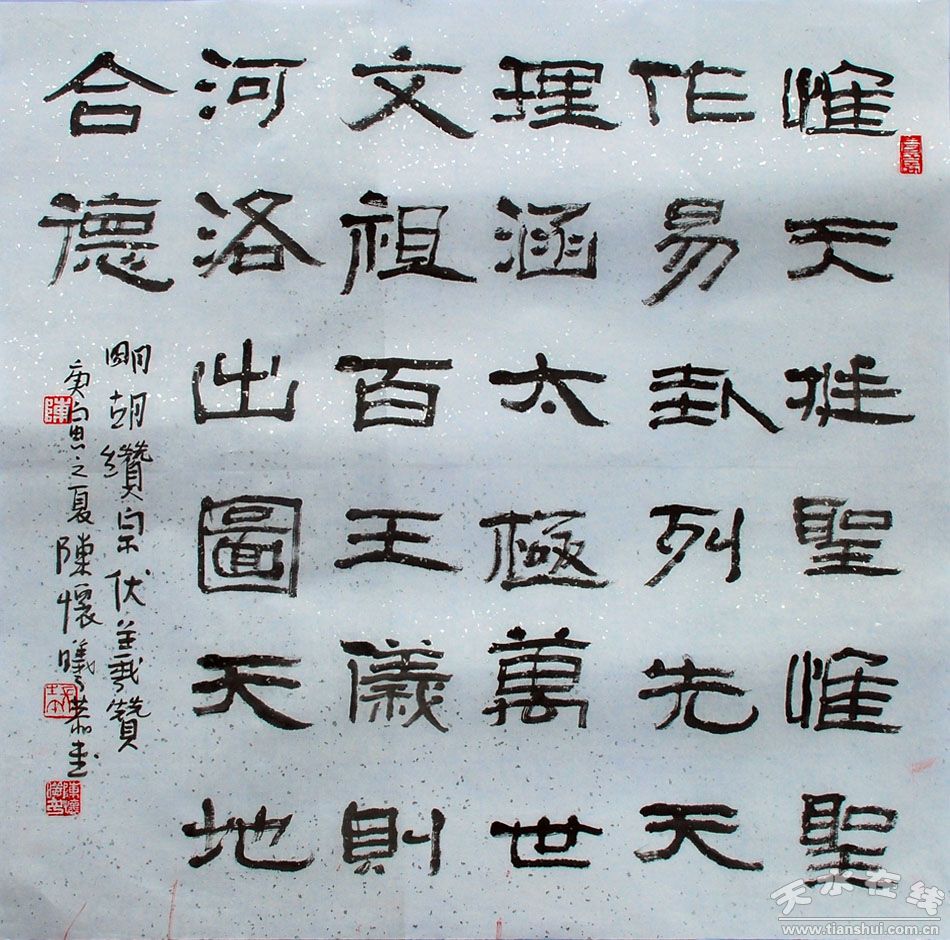 惟天聖惟聖
作易卦列先天
理涵太極萬世
文祖百王儀則
河洛出圖天地
合德
明胡纘宗伏羲贊
庚寅之夏陳懷曦恭書
陳
天水在线
www.tianshui.com.cn